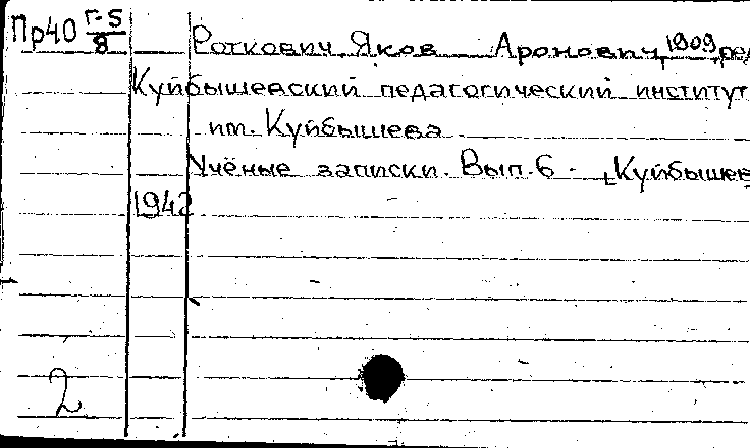 Пр40 Г-5/8
Роткович Яков Аронович, 1909 ред
Куйбышевский педагогический институт
им. Куйбышева
Учёные записки. Вып. 6. [Куйбышев
1942
2